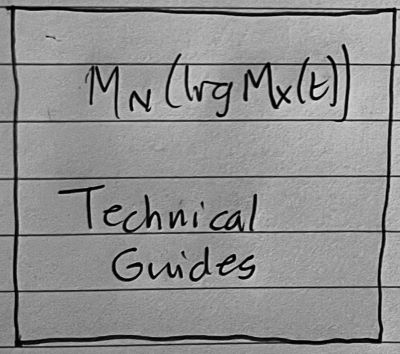 M_N(log M_X(t))
Technical
Guides